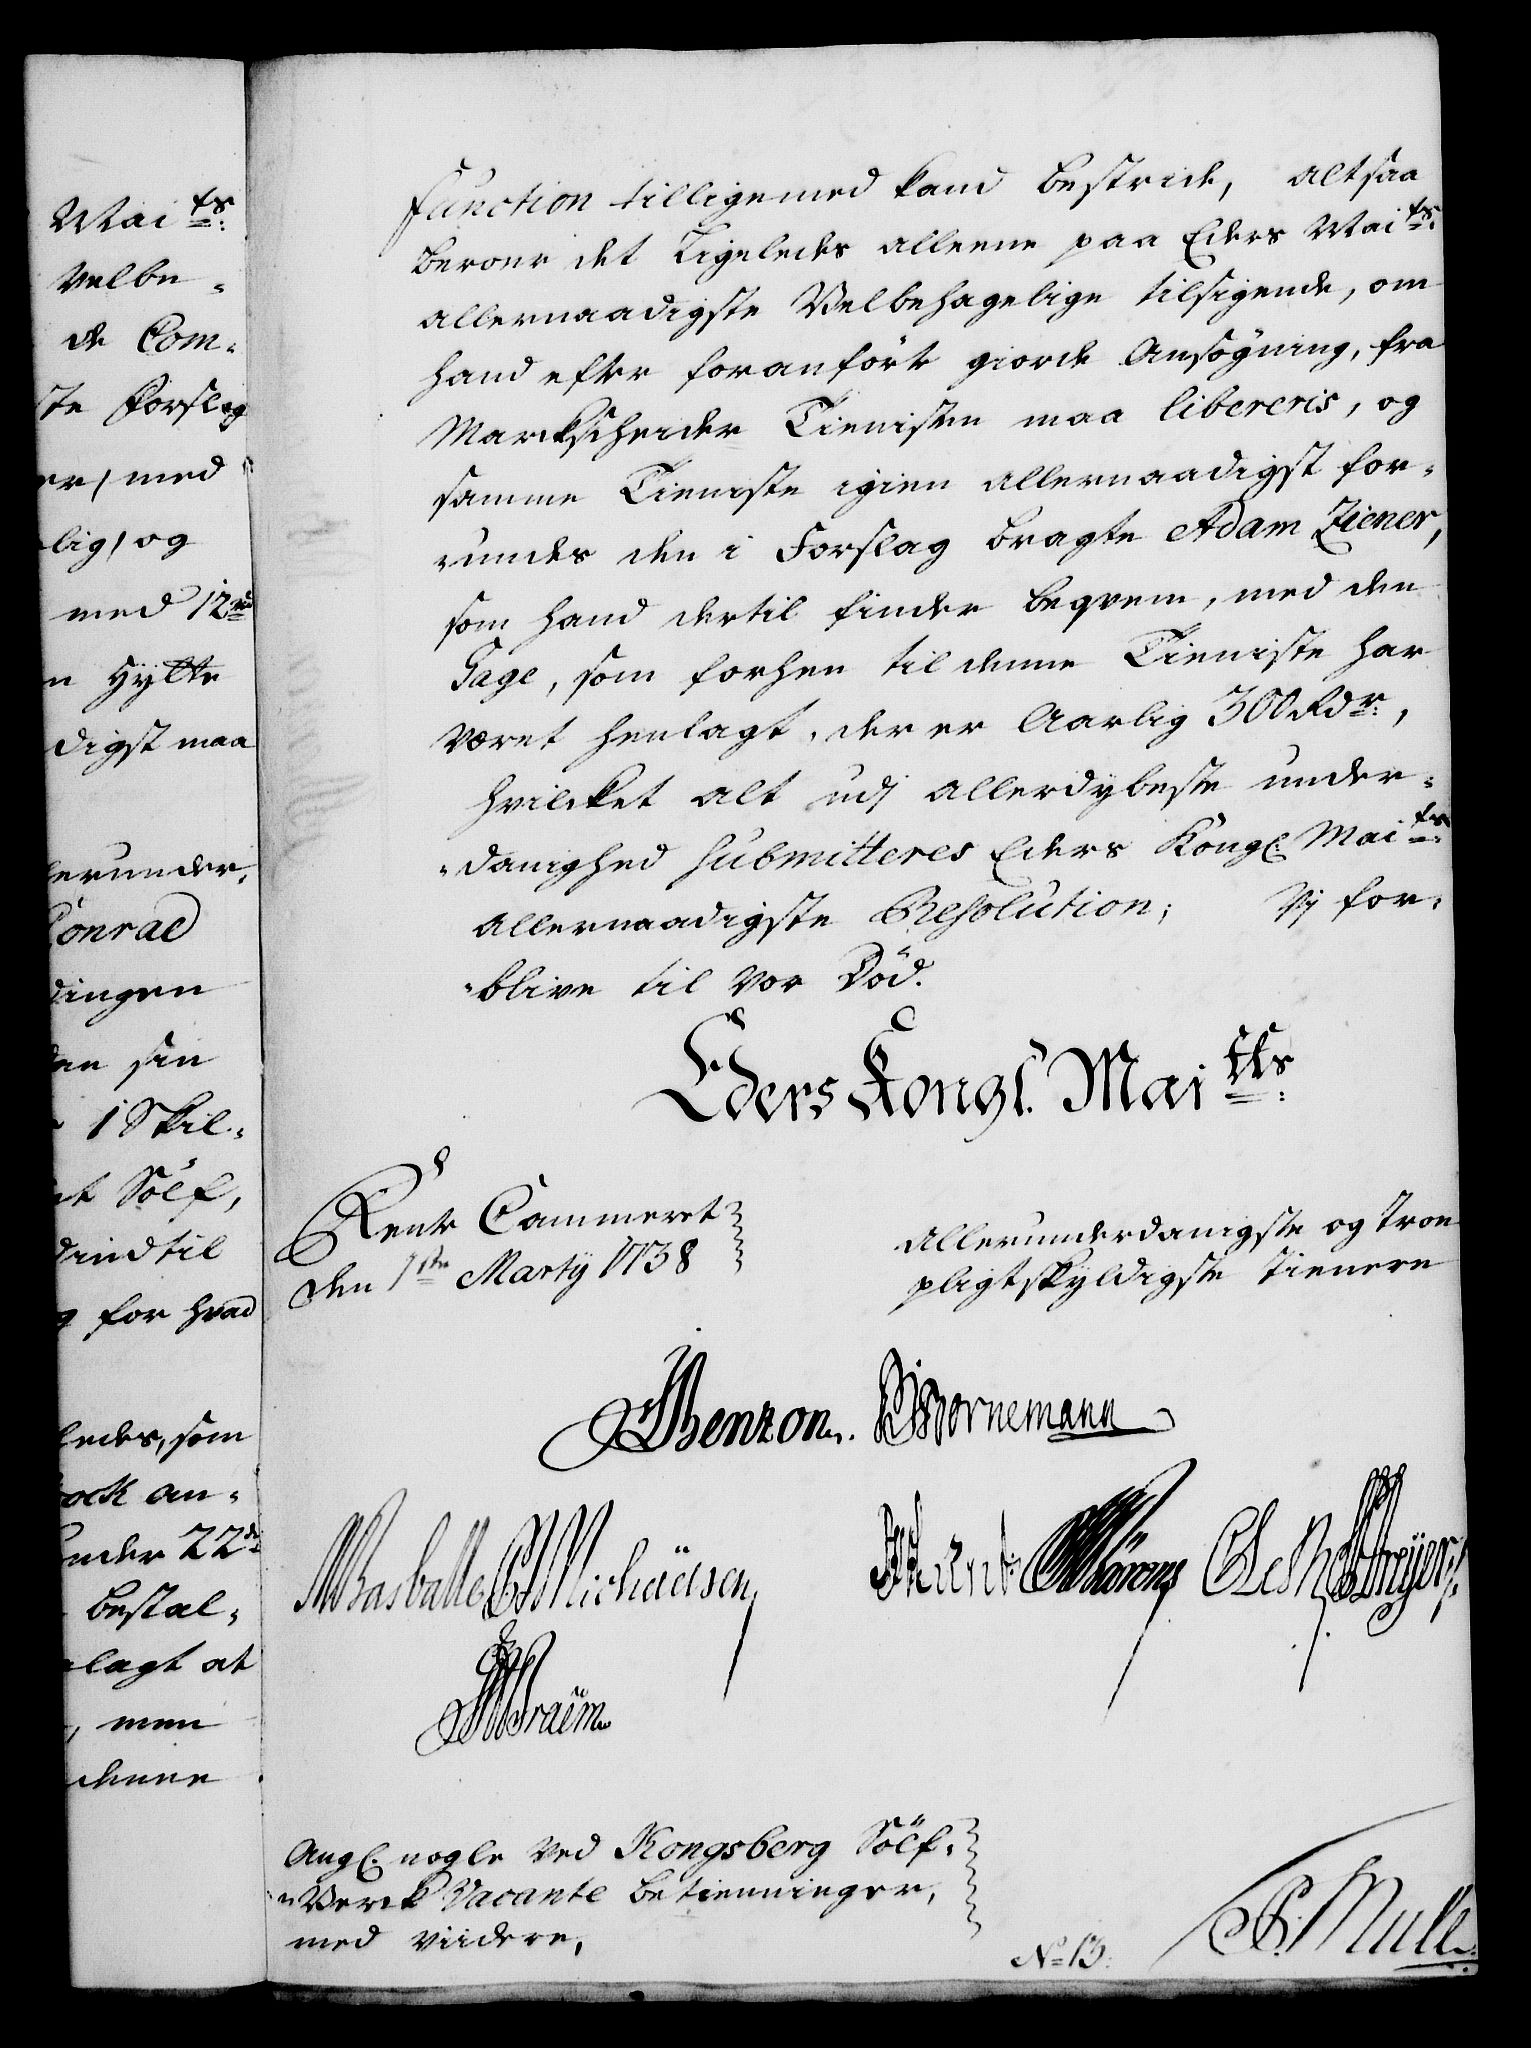 Mai ts:
Velbe-
de Com-
ste Forslag
er/ med
lig/ og
med 12
n Hytte
digst maa
lerunder-
Conrad
dingen
den sin
1 Skil-
at Sölf,
dindtil
for hvad
ledes, som
ock an-
under 22de
bestal-
lagt at
, men
denne
function tilligemed kand bestride, altsaa
beroer det Ligeledes alleene paa Eders Mai ts:
allernaadigste Velbehagelige tilsigende, om
hand efter foranförte giorde Ansögning, fra
Markscheider Tienisten maa libereris, og
samme Tieniste igien allernaadigst for-
undes den i Forslag bragte Adam Ziener,
som hand dertil finder beqvem, med den
Gage, som forhen til denne Tieniste har
været henlagt, der er Aarlig 300 Rdr:,
hvilcket alt udj allerdybeste under-
-danighed submitteres Eders Kongl. Mai ts:
allernaadigste Resolution; Vj for-
-blive til Vor Död.
Eders Kongl. Mai tts:
Rente Cammeret
den 1ste Martij 1738
allerunderdanigste og troe
pligtskyldigste Tienere
Benzon. Bornemann
Basballe Michaelsen
Kant CLesch
Braëm
Angl. nogle ved Kongsberg Sölf-
-Verck Vacante betienninger,
med viidere,
No 13:
P. Mull